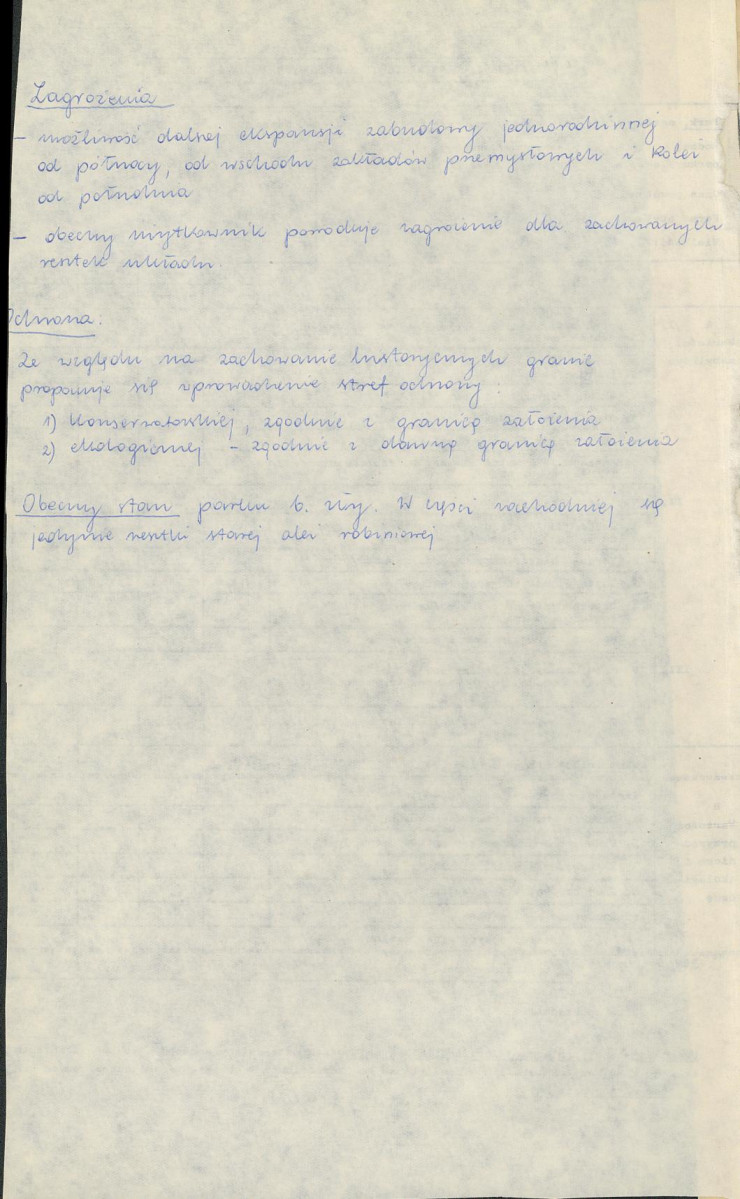 Zagrożenia
- możliwość dalszej ekspansji zabudowy jednorodzinnej
od północy, od wschodu zakładów przemysłowych i kolei
od południa
- obecny użytkownik powoduje zagrożenie dla zachowanych
resztek układu.
Ochrona:
Ze względu na zachowanie historycznych granic
proponuje się wprowadzenie stref ochrony:
1) Konserwatorskiej, zgodnie z granicą założenia
2) ekologicznej - zgodnie z dawną granicą założenia
Obecny stan parku b. zły. W części zachodniej są
jedynie resztki starej alei robiniowej